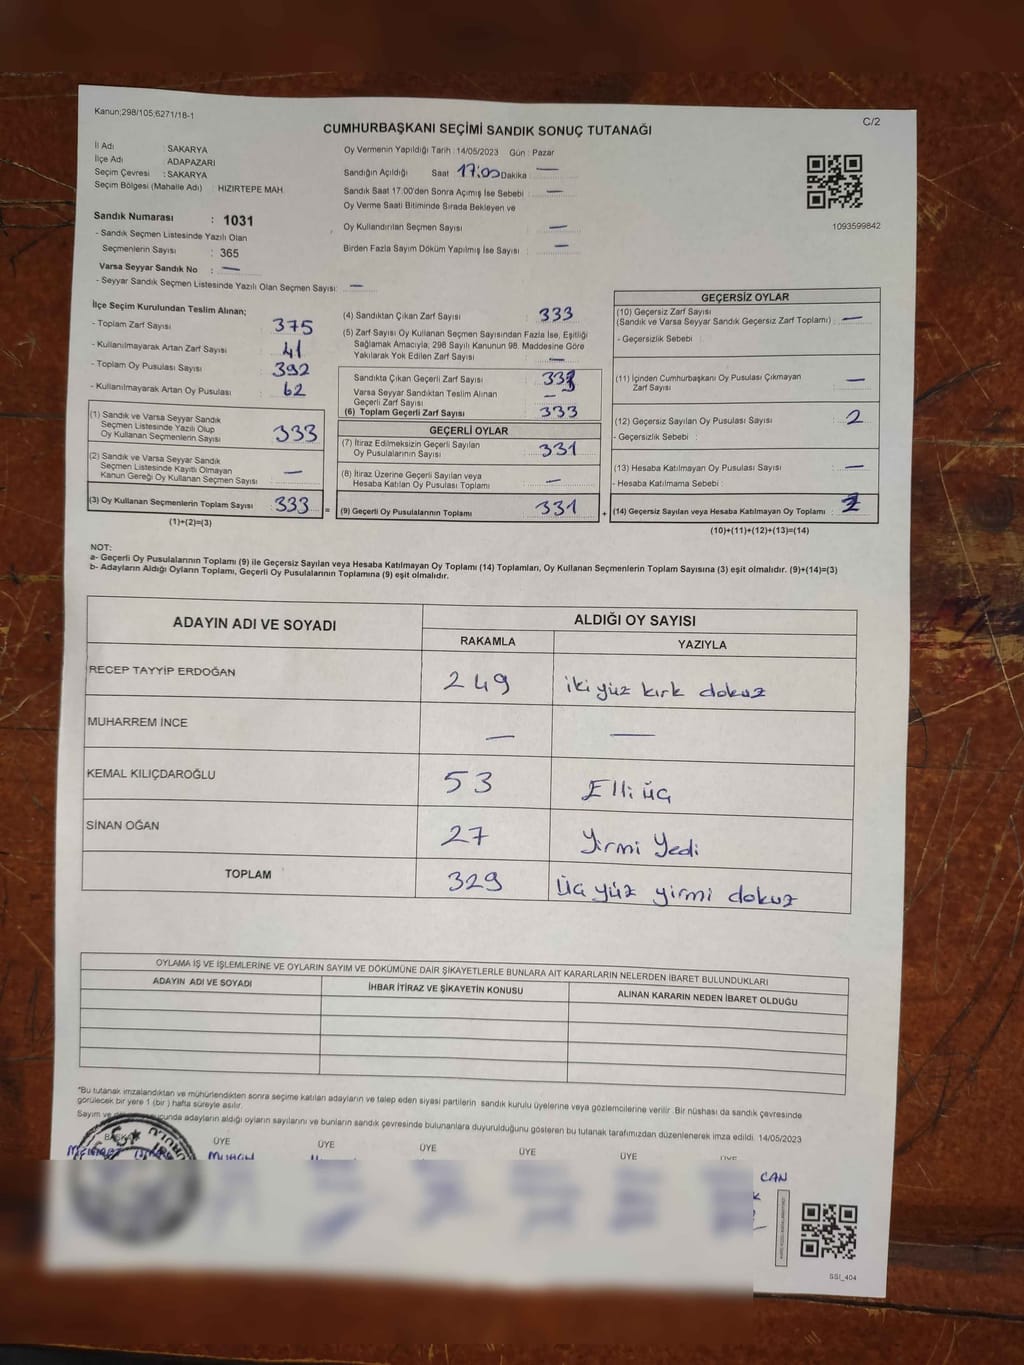 Kanun;298/105;6271/18-1
C/2
CUMHURBAŞKANI SEÇİMİ SANDIK SONUÇ TUTANAĞI
İl Adı : SAKARYA
İlçe Adı : ADAPAZARI
Seçim Çevresi : SAKARYA
Seçim Bölgesi (Mahalle Adı) : HIZIRTEPE MAH.
Sandık Numarası : 1031
- Sandık Seçmen Listesinde Yazılı Olan
Seçmenlerin Sayısı : 365
Varsa Seyyar Sandık No : —
- Seyyar Sandık Seçmen Listesinde Yazılı Olan Seçmen Sayısı: —
Oy Vermenin Yapıldığı Tarih : 14/05/2023 Gün : Pazar
Sandığın Açıldığı Saat 17:00 Dakika —
Sandık Saat 17.00'den Sonra Açımış İse Sebebi : —
Oy Verme Saati Bitiminde Sırada Bekleyen ve
Oy Kullandırılan Seçmen Sayısı : —
Birden Fazla Sayım Döküm Yapılmış İse Sayısı : —
1093599842
İlçe Seçim Kurulundan Teslim Alınan;
- Toplam Zarf Sayısı 375
- Kullanılmayarak Artan Zarf Sayısı 41
- Toplam Oy Pusulası Sayısı 392
- Kullanılmayarak Artan Oy Pusulası 62
(1) Sandık ve Varsa Seyyar Sandık
Seçmen Listesinde Yazılı Olup
Oy Kullanan Seçmenlerin Sayısı 333
(2) Sandık ve Varsa Seyyar Sandık
Seçmen Listesinde Kayıtlı Olmayan
Kanun Gereği Oy Kullanan Seçmen Sayısı —
(3) Oy Kullanan Seçmenlerin Toplam Sayısı 333 =
(1)+(2)=(3)
(4) Sandıktan Çıkan Zarf Sayısı 333
(5) Zarf Sayısı Oy Kullanan Seçmen Sayısından Fazla İse, Eşitliği
Sağlamak Amacıyla; 298 Sayılı Kanunun 98. Maddesine Göre
Yakılarak Yok Edilen Zarf Sayısı —
Sandıkta Çıkan Geçerli Zarf Sayısı 333
Varsa Seyyar Sandıktan Teslim Alınan
Geçerli Zarf Sayısı —
(6) Toplam Geçerli Zarf Sayısı 333
GEÇERLİ OYLAR
(7) İtiraz Edilmeksizin Geçerli Sayılan
Oy Pusulalarının Sayısı 331
(8) İtiraz Üzerine Geçerli Sayılan veya
Hesaba Katılan Oy Pusulası Toplamı —
(9) Geçerli Oy Pusulalarının Toplamı 331 +
GEÇERSİZ OYLAR
(10) Geçersiz Zarf Sayısı
(Sandık ve Varsa Seyyar Sandık Geçersiz Zarf Toplamı) : —
- Geçersizlik Sebebi :
(11) İçinden Cumhurbaşkanı Oy Pusulası Çıkmayan
Zarf Sayısı —
(12) Geçersiz Sayılan Oy Pusulası Sayısı 2
- Geçersizlik Sebebi :
(13) Hesaba Katılmayan Oy Pusulası Sayısı —
- Hesaba Katılmama Sebebi :
(14) Geçersiz Sayılan veya Hesaba Katılmayan Oy Toplamı : 2
(10)+(11)+(12)+(13)=(14)
NOT:
a- Geçerli Oy Pusulalarının Toplamı (9) ile Geçersiz Sayılan veya Hesaba Katılmayan Oy Toplamı (14) Toplamları, Oy Kullanan Seçmenlerin Toplam Sayısına (3) eşit olmalıdır. (9)+(14)=(3)
b- Adayların Aldığı Oyların Toplamı, Geçerli Oy Pusulalarının Toplamına (9) eşit olmalıdır.
ADAYIN ADI VE SOYADI
ALDIĞI OY SAYISI
RAKAMLA YAZIYLA
RECEP TAYYİP ERDOĞAN 249 iki yüz kırk dokuz
MUHARREM İNCE — —
KEMAL KILIÇDAROĞLU 53 Elli üç
SİNAN OĞAN 27 Yirmi Yedi
TOPLAM 329 Üç yüz yirmi dokuz
OYLAMA İŞ VE İŞLEMLERİNE VE OYLARIN SAYIM VE DÖKÜMÜNE DAİR ŞİKAYETLERLE BUNLARA AİT KARARLARIN NELERDEN İBARET BULUNDUKLARI
ADAYIN ADI VE SOYADI İHBAR İTİRAZ VE ŞİKAYETİN KONUSU ALINAN KARARIN NEDEN İBARET OLDUĞU
*Bu tutanak imzalandıktan ve mühürlendikten sonra seçime katılan adayların ve talep eden siyasi partilerin sandık kurulu üyelerine veya gözlemcilerine verilir. Bir nüshası da sandık çevresinde
görülecek bir yere 1 (bir) hafta süreyle asılır.
Sayım ve adayların aldığı oyların sayılarını ve bunların sandık çevresinde bulunanlara duyurulduğunu gösteren bu tutanak tarafımızdan düzenlenerek imza edildi. 14/05/2023
BAŞKAN ÜYE ÜYE ÜYE ÜYE ÜYE ÜYE
CAN
SSI_404